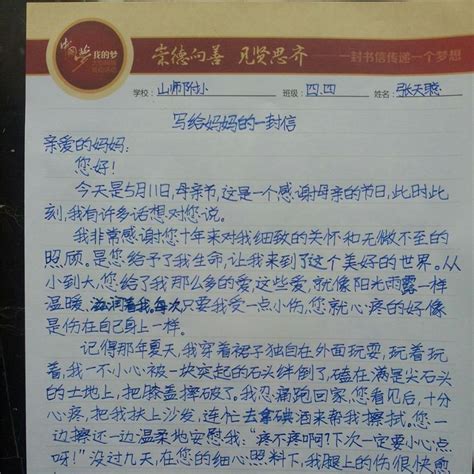 中国梦 我的梦
崇德向善 见贤思齐
一封书信传递一个梦想
学校: 山师附小 班级: 四.四 姓名: 张天骢
写给妈妈的一封信
亲爱的妈妈:
您好!
今天是5月11日,母亲节,这是一个感谢母亲的节日,此时此
刻,我有许多话想对您说。
我非常感谢您十年来对我细致的关怀和无微不至的
照顾。是您给予了我生命,让我来到了这个美好的世界。从
小到大,您给了我那么多的爱,这些爱,就像阳光雨露一样
温暖、滋润着我。每次只要我受一点小伤,您就心疼的好像
是伤在自己身上一样。
记得那年夏天,我穿着裙子独自在外面玩耍,玩着玩
着,我一不小心被一块突起的石头绊倒了,磕在满是尖石头
的土地上,把膝盖摔破了。我忍痛跑回家,您看见后,十分
心疼,把我扶上沙发,连忙去拿碘酒来帮我擦拭。您一
边擦还一边温柔地安慰我:“疼不疼啊?下次一定要小心点
呀!”没过几天,在您的细心照料下,我腿上的伤很快愈